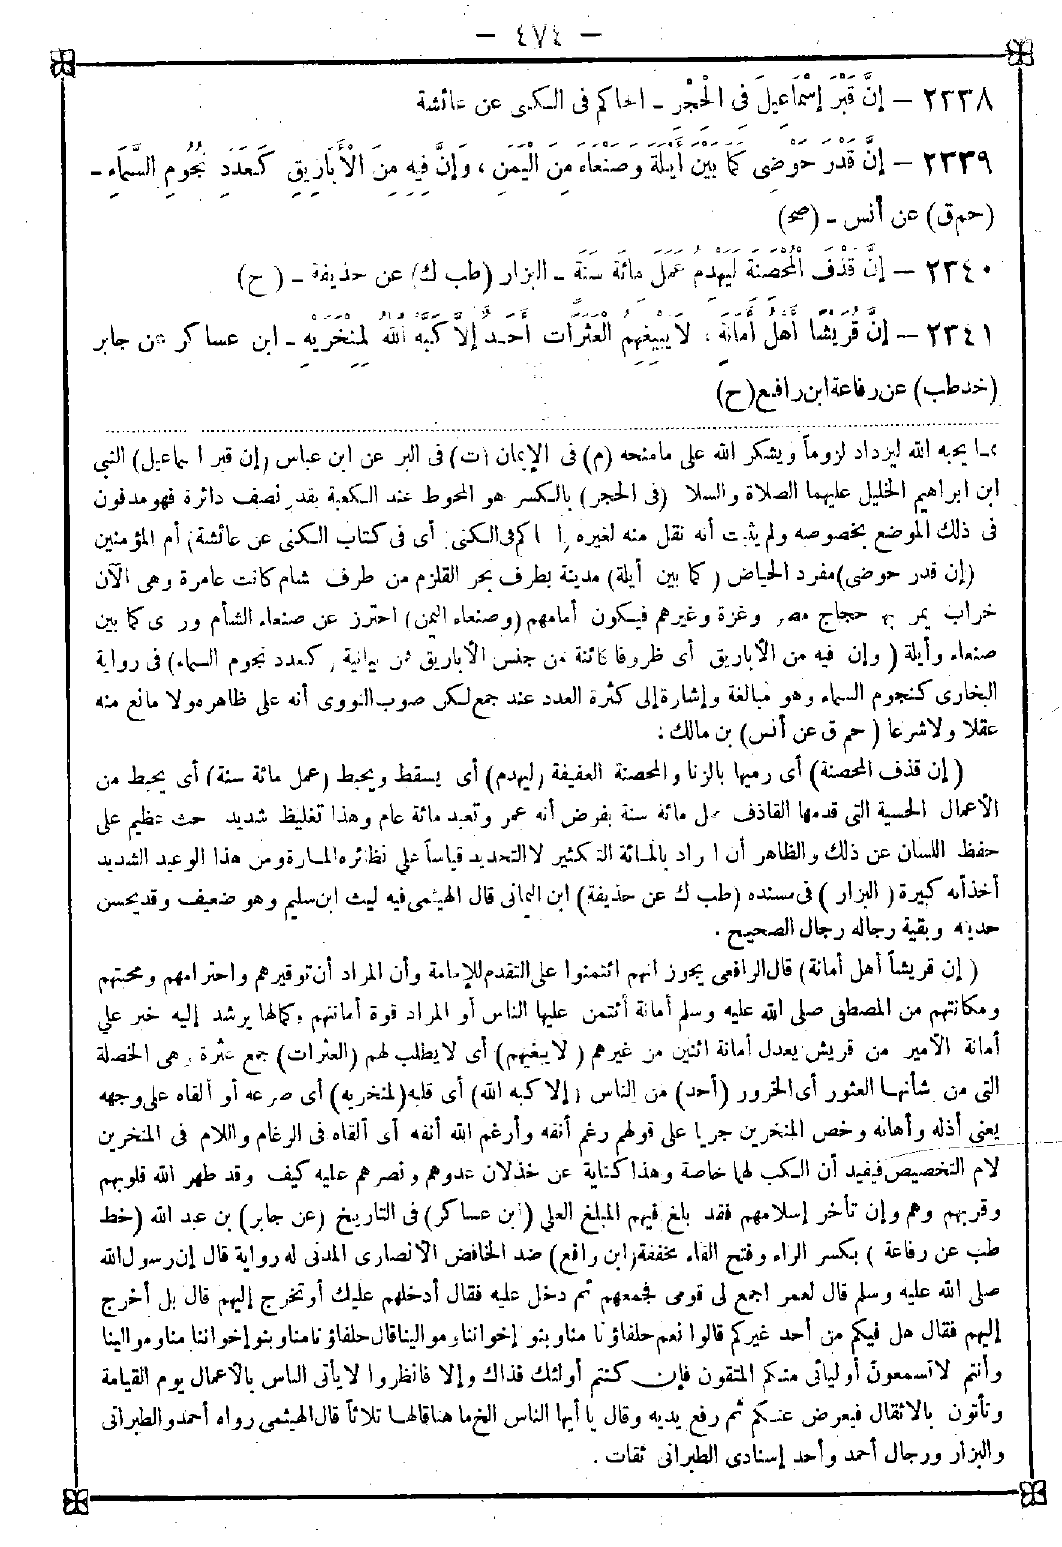 — ٤٧٤ —
٢٣٣٨ — إِنَّ قَبْرَ إِسْمَاعِيلَ فِى الْحِجْرِ ـ الحاكم فى الكنى عن عائشة
٢٣٣٩ — إِنَّ قَدْرَ حَوْضِى كَمَا بَيْنَ أَيْلَةَ وَصَنْعَاءَ مِنَ الْيَمَنِ ، وَإِنَّ فِيهِ مِنَ الْأَبَارِيقِ كَعَدَدِ نُجُومِ السَّمَاءِ ـ
(حم ق) عن أنس ـ (صح)
٢٣٤٠ — إِنَّ قَذْفَ الْمُحْصَنَةِ لَيَهْدِمُ عَمَلَ مِائَةِ سَنَةٍ ـ البزار (طب ك) عن حذيفة ـ (ح)
٢٣٤١ — إِنَّ قُرَيْشًا أَهْلُ أَمَانَةٍ ، لَا يَبْغِيهِمُ الْعَثَرَاتِ أَحَدٌ إِلَّا كَبَّهُ اللَّهُ لِمَنْخِرَيْهِ ـ ابن عساكر عن جابر
(خد طب) عن رفاعة ابن رافع (ح)
مما يحبه الله ليزداد لزوماً ويشكر الله على ما منحه (م) فى الإيمان (ت) فى البر عن ابن عباس (إن قبر اسماعيل) النبي
ابن ابراهيم الخليل عليهما الصلاة والسلا (فى الحجر) بالكسر هو المحوط عند الكعبة بقدر نصف دائرة فهو مدفون
فى ذلك الموضع بخصوصه ولم يثبت أنه نقل منه لغيره (الحاكم فى الكنى) أى فى كتاب الكنى عن عائشة) أم المؤمنين
(إن قدر حوضى) مفرد الحياض (كما بين أيلة) مدينة بطرف بحر القلزم من طرف شام كانت عامرة وهى الآن
خراب يمر بها حجاج مصر وغزة وغيرهم فيكون أمامهم (وصنعاء اليمن) احترز عن صنعاء الشأم وروى كما بين
صنعاء وأيلة (وإن فيه من الأباريق أى ظروفا كائنة من جنس الأباريق فمن بيانية (كعدد نجوم السماء) فى رواية
البخارى كنجوم السماء وهو مبالغة وإشارة إلى كثرة العدد عند جمع لكن صوب النووى أنه على ظاهره ولا مانع منه
عقلا ولا شرعا (حم ق عن أنس) بن مالك .
(إن قذف المحصنة) أى رميها بالزنا والمحصنة العفيفة (ليهدم) أى يسقط ويحبط (عمل مائة سنة) أى يحبط من
الأعمال الحسية التى قدمها القاذف عمل مائة سنة بفرض أنه عمر وتعبد مائة عام وهذا تغليظ شديد حث عظيم على
حفظ اللسان عن ذلك والظاهر أن المراد بالمائة التكثير لا التحديد قياساً على نظائره المارة ومن هذا الوعيد الشديد
أخذ أنه كبيرة (البزار) فى مسنده (طب ك عن حذيفة) ابن اليمانى قال الهيثمى فيه ليث ابن سليم وهو ضعيف وقد يحسن
حديثه وبقية رجاله رجال الصحيح .
(إن قريشاً أهل أمانة) قال الرافعى يجوز أنهم ائتمنوا على التقدم للإمامة وأن المراد أن توقيرهم واحترامهم ومحبتهم
ومكانتهم من المصطفى صلى الله عليه وسلم أمانة أئتمن عليها الناس أو المراد قوة أمانتهم وكمالها يرشد إليه خبر على
أمانة الأمير من قريش يعدل أمانة اثنين من غيرهم (لا يبغيهم) أى لا يطلب لهم (العثرات) جمع عثرة وهى الخصلة
التى من شأنها العثور أى الخرور (أحد) من الناس (إلا كبه الله) أى قلبه (لمنخريه) أى صرعه أو ألقاه على وجهه
يعنى أذله وأهانه وخص المنخرين جريا على قولهم رغم أنفه وأرغم الله أنفه أى ألقاه فى الرغام واللام فى المنخرين
لام التخصيص فيفيد أن الكب لها خاصة وهذا كناية عن خذلان عدوهم ونصرهم عليه كيف وقد طهر الله قلوبهم
وقربهم وهم وإن تأخر إسلامهم فقد بلغ فيهم المبلغ العلى (ابن عساكر) فى التاريخ (عن جابر) بن عبد الله (خط
طب عن رفاعة) بكسر الراء وفتح الفاء مخففة (ابن رافع) ضد الخافض الأنصارى المدنى له رواية قال إن رسول الله
صلى الله عليه وسلم قال لعمر اجمع لى قومى فجمعهم ثم دخل عليه فقال أدخلهم عليك أو تخرج إليهم قال بل أخرج
إليهم فقال هل فيكم من أحد غيركم قالوا نعم حلفاؤنا منا وبنو إخواننا وموالينا قال حلفاؤنا منا وبنو إخواننا منا وموالينا
وأنتم لا تسمعون أوليائى منكم المتقون فإن كنتم أولئك فذاك وإلا فانظروا لا يأتى الناس بالأعمال يوم القيامة
وتأتون بالاثقال فيعرض عنكم ثم رفع يديه وقال يا أيها الناس الخ ما هنا قالها ثلاثاً قال الهيثمى رواه أحمد والطبرانى
والبزار ورجال أحمد وأحد إسنادى الطبرانى ثقات .